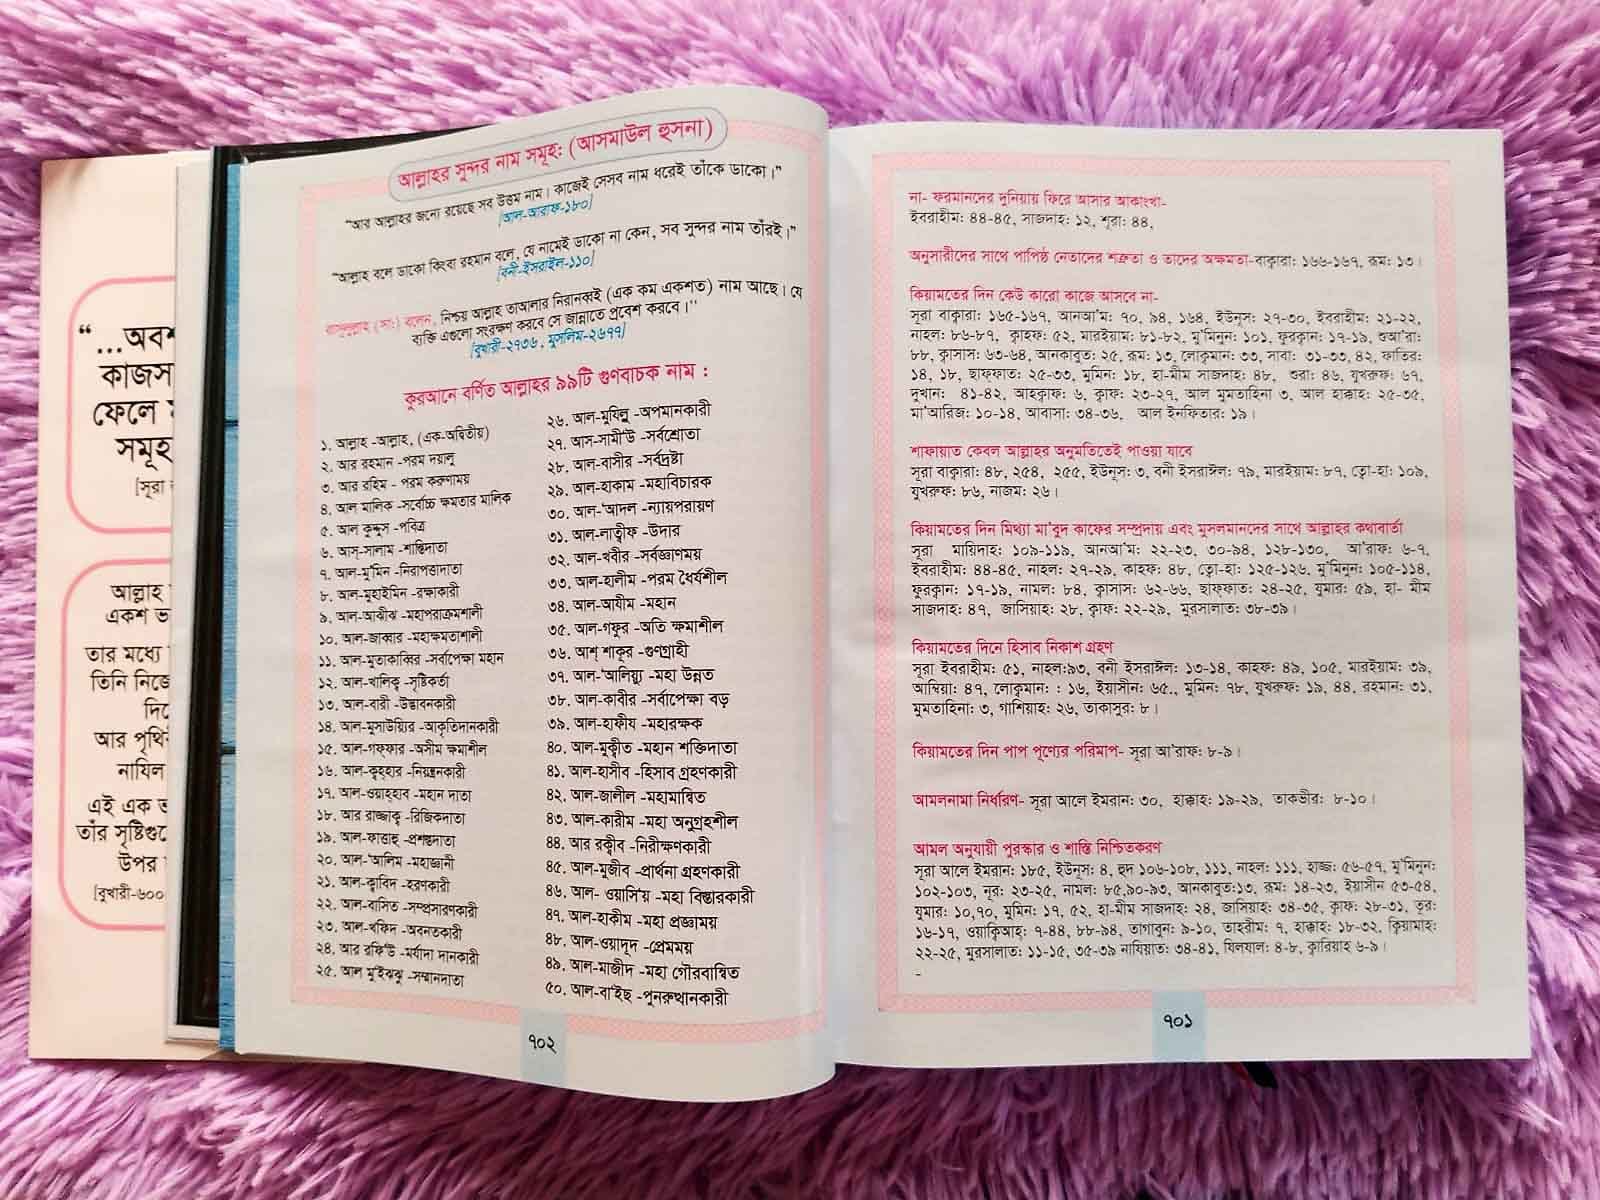 “...অবশ
কাজস
ফেলে
সমূহ
[সূরা
আল্লাহ
একশ ভ
তার মধ্যে
তিনি নিজে
দি
আর পৃথি
নাযিল
এই এক
তাঁর সৃষ্টিগু
উপর
[বুখারী-৬০০
আল্লাহর সুন্দর নাম সমূহ: (আসমাউল হুসনা)
“আর আল্লাহর জন্যে রয়েছে সব উত্তম নাম। কাজেই সেসব নাম ধরেই তাঁকে ডাকো।”
[আল-আরাফ-১৮০]
“আল্লাহ বলে ডাকো কিংবা রহমান বলে, যে নামেই ডাকো না কেন, সব সুন্দর নাম তাঁরই।”
[বনী-ইসরাইল-১১০]
রাসূলুল্লাহ (সাঃ) বলেন, নিশ্চয় আল্লাহ তাআলার নিরানব্বই (এক কম একশত) নাম আছে। যে
ব্যক্তি এগুলো সংরক্ষণ করবে সে জান্নাতে প্রবেশ করবে।”
[বুখারী-২৭৩৬, মুসলিম-২৬৭৭]
কুরআনে বর্ণিত আল্লাহর ৯৯টি গুণবাচক নাম :
১. আল্লাহ -আল্লাহ, (এক-অদ্বিতীয়)
২. আর রহমান -পরম দয়ালু
৩. আর রহিম - পরম করুণাময়
৪. আল মালিক -সর্বোচ্চ ক্ষমতার মালিক
৫. আল কুদ্দুস -পবিত্র
৬. আস্-সালাম -শান্তিদাতা
৭. আল-মু'মিন -নিরাপত্তাদাতা
৮. আল-মুহাইমিন -রক্ষাকারী
৯. আল-আঝীঝ -মহাপরাক্রমশালী
১০. আল-জাব্বার -মহাক্ষমতাশালী
১১. আল-মুতাকাব্বির -সর্বাপেক্ষা মহান
১২. আল-খালিক্ব -সৃষ্টিকর্তা
১৩. আল-বারী -উদ্ভাবনকারী
১৪. আল-মুসাউয়্যির -আকৃতিদানকারী
১৫. আল-গফ্ফার -অসীম ক্ষমাশীল
১৬. আল-ক্বহ্হার -নিয়ন্ত্রনকারী
১৭. আল-ওয়াহ্হাব -মহান দাতা
১৮. আর রাজ্জাক্ব -রিজিকদাতা
১৯. আল-ফাত্তাহু -প্রশস্তদাতা
২০. আল-'আলিম -মহাজ্ঞানী
২১. আল-ক্বাবিদ -হরণকারী
২২. আল-বাসিত -সম্প্রসারণকারী
২৩. আল-খফিদ -অবনতকারী
২৪. আর রফি'উ -মর্যাদা দানকারী
২৫. আল মু'ইঝঝু -সম্মানদাতা
২৬. আল-মুযিল্লু -অপমানকারী
২৭. আস-সামী'উ -সর্বশ্রোতা
২৮. আল-বাসীর -সর্বদ্রষ্টা
২৯. আল-হাকাম -মহাবিচারক
৩০. আল-'আদল -ন্যায়পরায়ণ
৩১. আল-লাত্বীফ -উদার
৩২. আল-খবীর -সর্বজ্ঞাণময়
৩৩. আল-হালীম -পরম ধৈর্যশীল
৩৪. আল-আযীম -মহান
৩৫. আল-গফুর -অতি ক্ষমাশীল
৩৬. আশ্ শাকূর -গুণগ্রাহী
৩৭. আল-'আলিয়্যু -মহা উন্নত
৩৮. আল-কাবীর -সর্বাপেক্ষা বড়
৩৯. আল-হাফীয -মহারক্ষক
৪০. আল-মুক্বীত -মহান শক্তিদাতা
৪১. আল-হাসীব -হিসাব গ্রহণকারী
৪২. আল-জালীল -মহামান্বিত
৪৩. আল-কারীম -মহা অনুগ্রহশীল
৪৪. আর রক্বীব -নিরীক্ষণকারী
৪৫. আল-মুজীব -প্রার্থনা গ্রহণকারী
৪৬. আল- ওয়াসি'য় -মহা বিস্তারকারী
৪৭. আল-হাকীম -মহা প্রজ্ঞাময়
৪৮. আল-ওয়াদূদ -প্রেমময়
৪৯. আল-মাজীদ -মহা গৌরবান্বিত
৫০. আল-বা'ইছ -পুনরুত্থানকারী
৭০২
না- ফরমানদের দুনিয়ায় ফিরে আসার আকাংখা-
ইবরাহীম: ৪৪-৪৫, সাজদাহ: ১২, শূরা: ৪৪,
অনুসারীদের সাথে পাপিষ্ঠ নেতাদের শত্রুতা ও তাদের অক্ষমতা-বাক্বারা: ১৬৬-১৬৭, রূম: ১৩।
কিয়ামতের দিন কেউ কারো কাজে আসবে না-
সূরা বাক্বারা: ১৬৫-১৬৭, আনআ'ম: ৭০, ৯৪, ১৬৪, ইউনূস: ২৭-৩০, ইবরাহীম: ২১-২২,
নাহল: ৮৬-৮৭, ক্বাহফ: ৫২, মারইয়াম: ৮১-৮২, মু'মিনুন: ১০১, ফুরক্বান: ১৭-১৯, শুআ'রা:
৮৮, ক্বাসাস: ৬৩-৬৪, আনকাবুত: ২৫, রূম: ১৩, লোকুমান: ৩৩, সাবা: ৩১-৩৩, ৪২, ফাতির:
১৪, ১৮, ছাফ্ফাত: ২৫-৩৩, মুমিন: ১৮, হা-মীম সাজদাহ: ৪৮, শুরা: ৪৬, যুখরুফ: ৬৭,
দুখান: ৪১-৪২, আহক্বাফ: ৬, ক্বাফ: ২৩-২৭, আল মুমতাহিনা ৩, আল হাক্কাহ: ২৫-৩৫,
মা'আরিজ: ১০-১৪, আবাসা: ৩৪-৩৬, আল ইনফিতার: ১৯।
শাফায়াত কেবল আল্লাহর অনুমতিতেই পাওয়া যাবে
সূরা বাক্বারা: ৪৮, ২৫৪, ২৫৫, ইউনুস: ৩, বনী ইসরাঈল: ৭৯, মারইয়াম: ৮৭, ত্বো-হা: ১০৯,
যুখরুফ: ৮৬, নাজম: ২৬।
কিয়ামতের দিন মিথ্যা মা'বুদ কাফের সম্প্রদায় এবং মুসলমানদের সাথে আল্লাহর কথাবার্তা
সূরা মায়িদাহ: ১০৯-১১৯, আনআ'ম: ২২-২৩, ৩০-৯৪, ১২৮-১৩০, আ'রাফ: ৬-৭,
ইবরাহীম: ৪৪-৪৫, নাহল: ২৭-২৯, কাহফ: ৪৮, ত্বো-হা: ১২৫-১২৬, মু'মিনুন: ১০৫-১১৪,
ফুরক্বান: ১৭-১৯, নামল: ৮৪, ক্বাসাস: ৬২-৬৬, ছাফ্ফাত: ২৪-২৫, যুমার: ৫৯, হা- মীম
সাজদাহ: ৪৭, জাসিয়াহ: ২৮, ক্বাফ: ২২-২৯, মুরসালাত: ৩৮-৩৯।
কিয়ামতের দিনে হিসাব নিকাশ গ্রহণ
সূরা ইবরাহীম: ৫১, নাহল:৯৩, বনী ইসরাঈল: ১৩-১৪, কাহফ: ৪৯, ১০৫, মারইয়াম: ৩৯,
আম্বিয়া: ৪৭, লোকুমান: : ১৬, ইয়াসীন: ৬৫., মুমিন: ৭৮, যুখরুফ: ১৯, ৪৪, রহমান: ৩১,
মুমতাহিনা: ৩, গাশিয়াহ: ২৬, তাকাসুর: ৮।
কিয়ামতের দিন পাপ পূণ্যের পরিমাপ- সূরা আ'রাফ: ৮-৯।
আমলনামা নির্ধারণ- সূরা আলে ইমরান: ৩০, হাক্কাহ: ১৯-২৯, তাকভীর: ৮-১০।
আমল অনুযায়ী পুরস্কার ও শাস্তি নিশ্চিতকরণ
সূরা আলে ইমরান: ১৮৫, ইউনূস: ৪, হুদ ১০৬-১০৮, ১১১, নাহল: ১১১, হাজ্জ: ৫৬-৫৭, মু'মিনুন:
১০২-১০৩, নূর: ২৩-২৫, নামল: ৮৫,৯০-৯৩, আনকাবুত:১৩, রূম: ১৪-২৩, ইয়াসীন ৫৩-৫৪,
যুমার: ১০,৭০, মুমিন: ১৭, ৫২, হা-মীম সাজদাহ: ২৪, জাসিয়াহ: ৩৪-৩৫, ক্বাফ: ২৮-৩১, তূর:
১৬-১৭, ওয়াক্বিআহ: ৭-৪৪, ৮৮-৯৪, তাগাবুন: ৯-১০, তাহরীম: ৭, হাক্কাহ: ১৮-৩২, ক্বিয়ামাহ:
২২-২৫, মুরসালাত: ১১-১৫, ৩৫-৩৯ নাযিয়াত: ৩৪-৪১, যিলযাল: ৪-৮, ক্বারিয়াহ ৬-৯।
-
৭০১